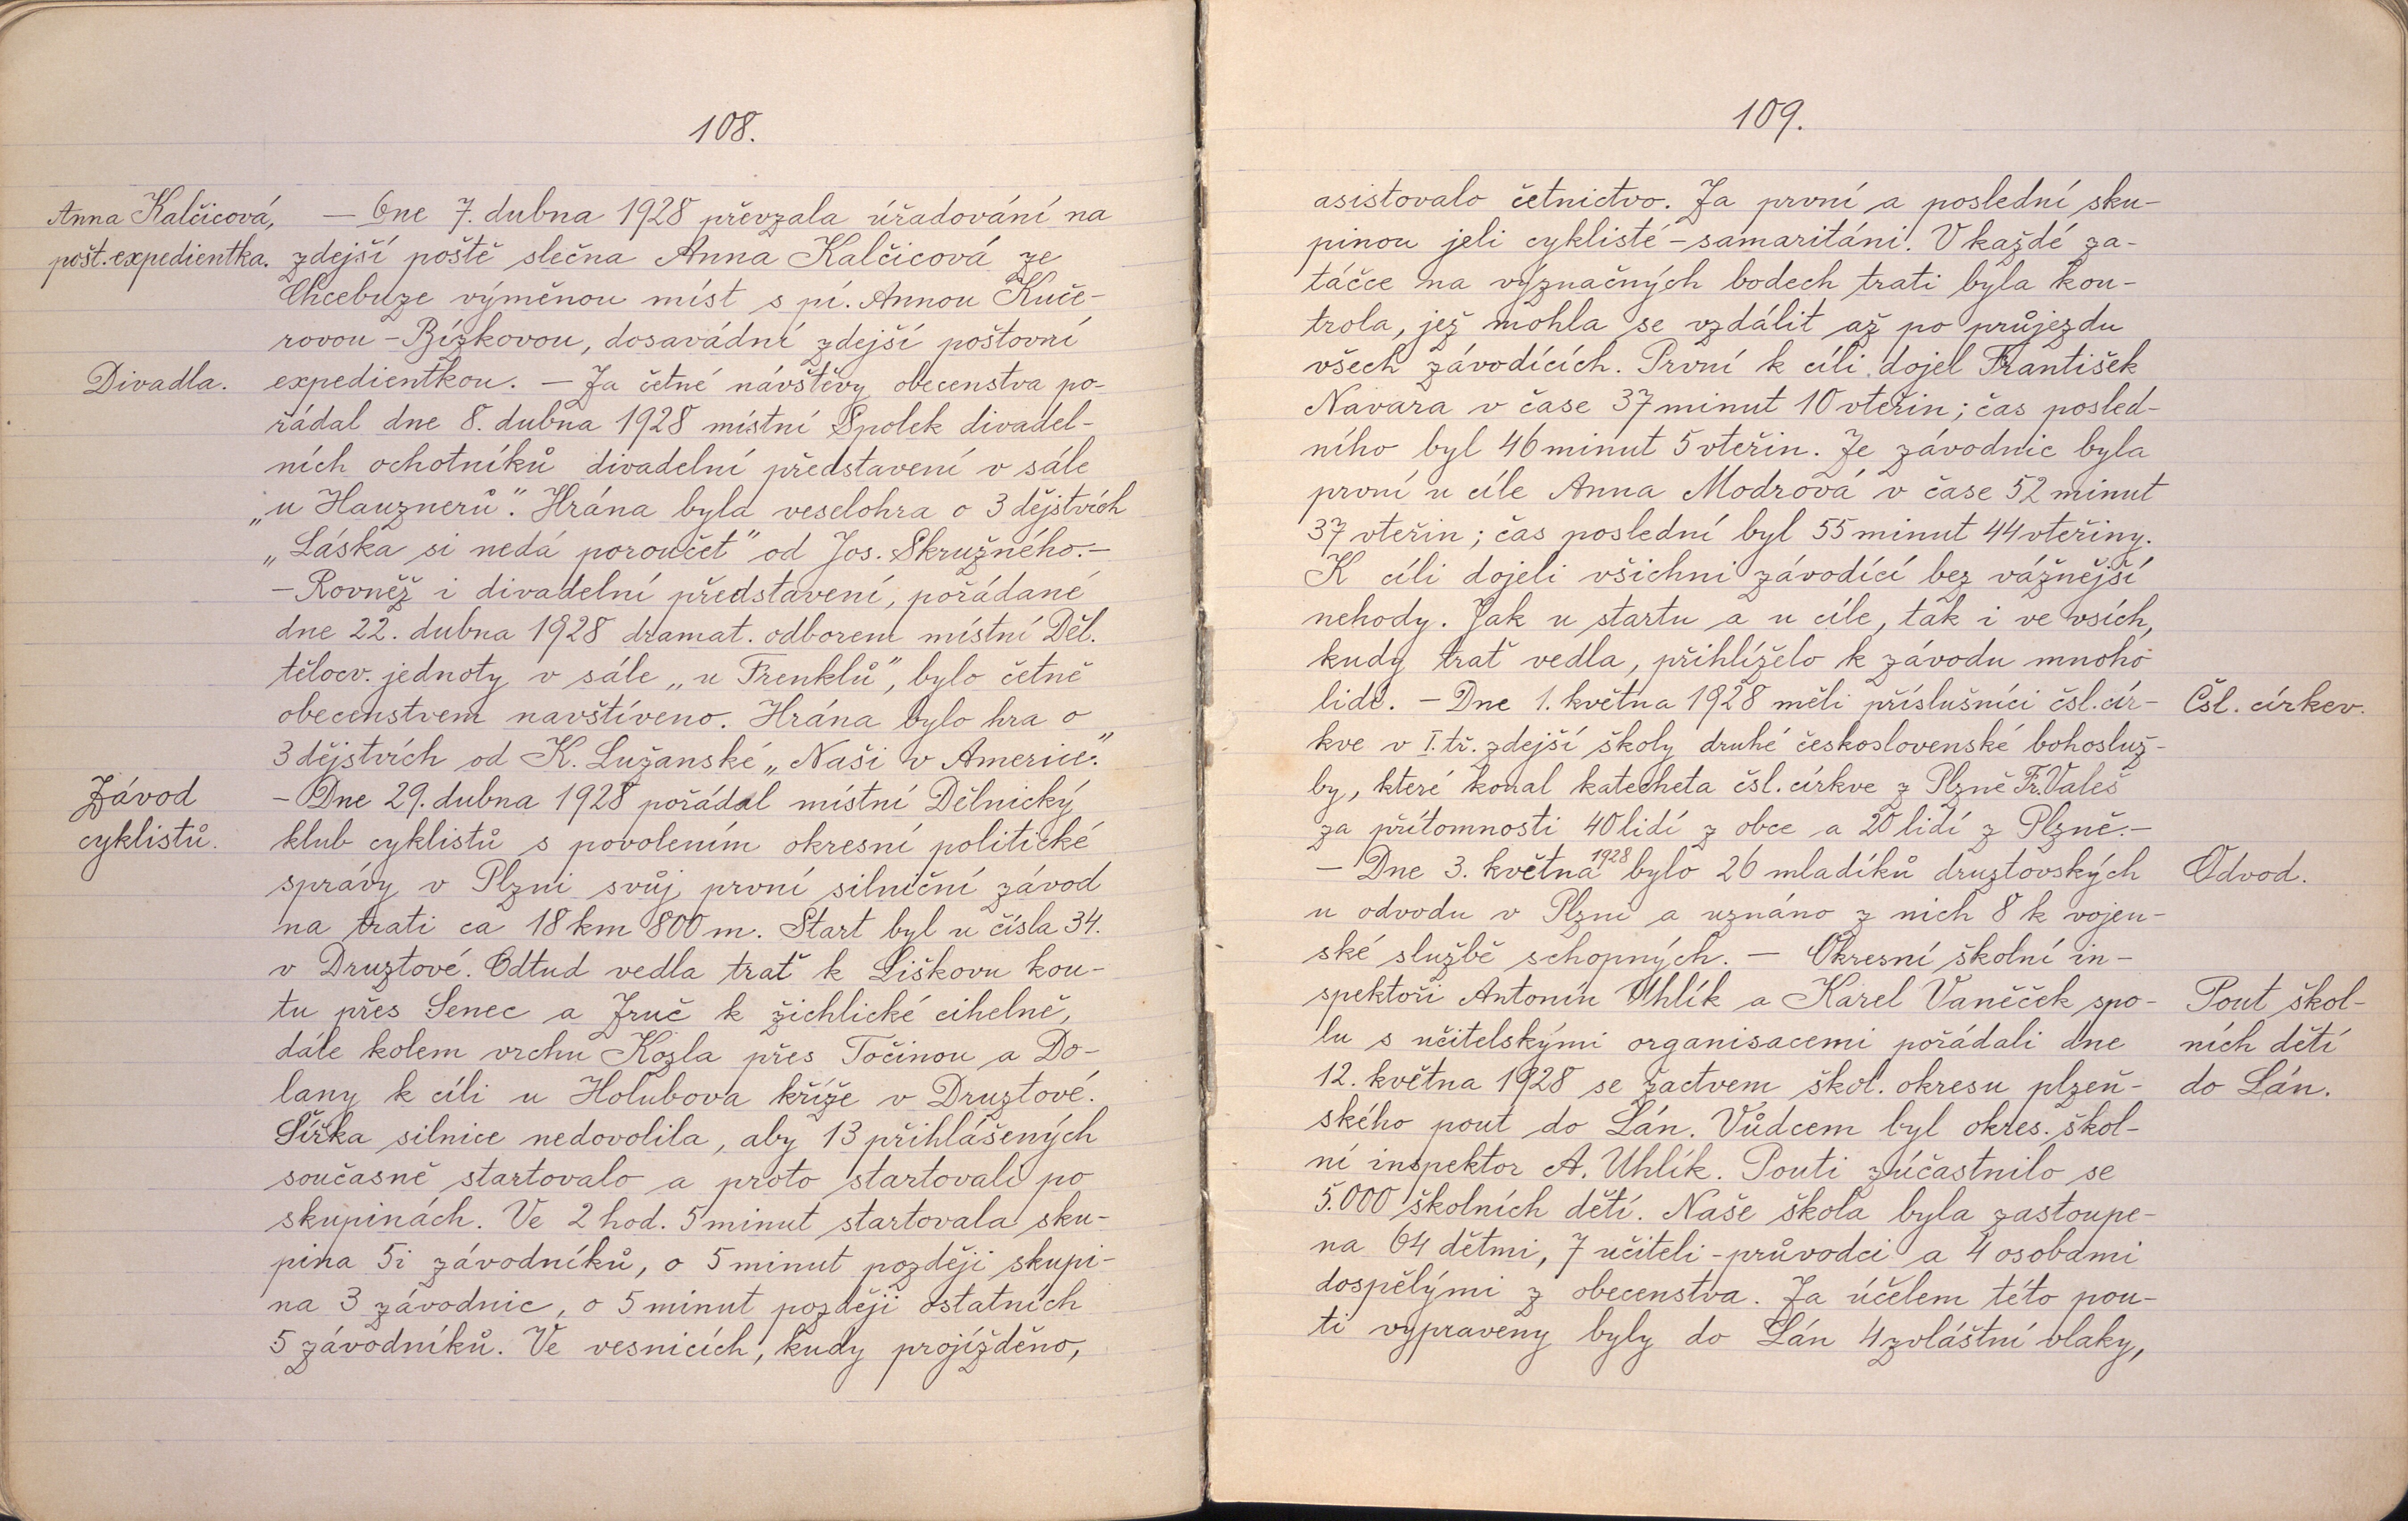 108.
Anna Kalčicová,
pošt. expedientka.
— Dne 7. dubna 1928 převzala úřadování na
zdejší poště slečna Anna Kalčicová ze
Chcebuze výměnou míst s pí. Annou Kuče-
rovou-Bízkovou, dosavádní zdejší poštovní
Divadla.
expedientkou. — Za četné návštěvy obecenstva po-
řádal dne 8. dubna 1928 místní Spolek divadel-
ních ochotníků divadelní představení v sále
„u Hauznerů". Hrána byla veselohra o 3 dějstvích
„Láska si nedá poroučet" od Jos. Skružného. —
— Rovněž i divadelní představení, pořádané
dne 22. dubna 1928 dramat. odborem místní Děl.
tělocv. jednoty v sále „u Frenklů", bylo četně
obecenstvem navštíveno. Hrána bylo hra o
3 dějstvích od K. Lužanské „Naši v Americe."
Závod
cyklistů.
— Dne 29. dubna 1928 pořádal místní Dělnický
klub cyklistů s povolením okresní politické
správy v Plzni svůj první silniční závod
na trati ca 18 km 800 m. Start byl u čísla 34.
v Druztové. Odtud vedla trať k Liškovu kou-
tu přes Senec a Zruč k žichlické cihelně,
dále kolem vrchu Kozla přes Točinou a Do-
lany k cíli u Holubova kříže v Druztové.
Šířka silnice nedovolila, aby 13 přihlášených
současně startovalo a proto startovali po
skupinách. Ve 2 hod. 5 minut startovala sku-
pina 5i závodníků, o 5 minut později skupi-
na 3 závodnic, o 5 minut později ostatních
5 závodníků. Ve vesnicích, kudy projížděno,
109.
asistovalo četnictvo. Za první a poslední sku-
pinou jeli cyklisté-samaritáni. V každé za-
táčce na význačných bodech trati byla kon-
trola, jež mohla se vzdálit až po průjezdu
všech závodících. První k cíli dojel František
Navara v čase 37 minut 10 vteřin; čas posled-
ního byl 46 minut 5 vteřin. Ze závodnic byla
první u cíle Anna Modrová v čase 52 minut
37 vteřin; čas poslední byl 55 minut 44 vteřiny.
K cíli dojeli všichni závodící bez vážnější
nehody. Jak u startu a u cíle, tak i ve vsích,
kudy trať vedla, přihlíželo k závodu mnoho
lidí. — Dne 1. května 1928 měli příslušníci čsl. cír-
Čsl. církev.
kve v I. tř. zdejší školy druhé československé bohosluž-
by, které konal katecheta čsl. církve z Plzně Fr. Valeš
za přítomnosti 40 lidí z obce a 20 lidí z Plzně. —
— Dne 3. května 1928 bylo 26 mladíků druztovských
Odvod.
u odvodu v Plzni a uznáno z nich 8 k vojen-
ské službě schopných. — Okresní školní in-
spektoři Antonín Uhlík a Karel Vaněček spo-
Pout škol-
lu s učitelskými organisacemi pořádali dne
ních dětí
12. května 1928 se žactvem škol. okresu plzeň-
do Lán.
ského pout do Lán. Vůdcem byl okres. škol-
ní inspektor A. Uhlík. Pouti zúčastnilo se
5.000 školních dětí. Naše škola byla zastoupe-
na 64 dětmi, 7 učiteli-průvodci a 4 osobami
dospělými z obecenstva. Za účelem této pou-
ti vypraveny byly do Lán 4 zvláštní vlaky,